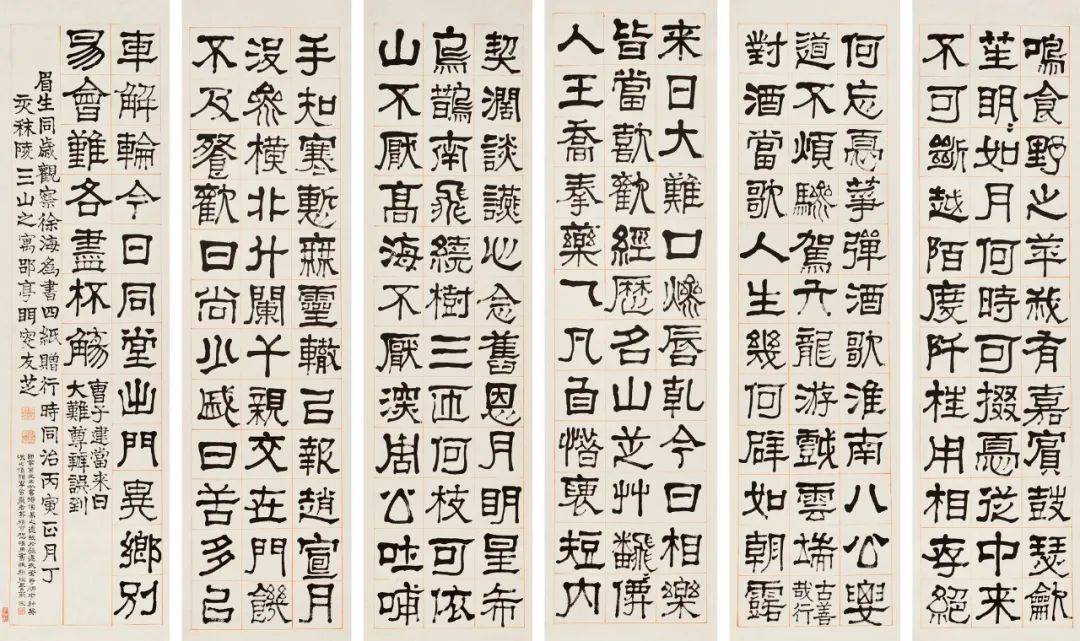 鳴食野之苹我有嘉賓鼓瑟龡
笙明〻如月何時可掇憂從中來
不可斷越陌度阡枉用相存絕
何忘憂箏彈酒歌淮南八公要
道不煩驂駕六龍游戲雲端古善哉行
對酒當歌人生幾何譬如朝露
來日大難口燥脣乾今日相樂
皆當歖歡經歷名山芝艸飜〻僊
人王喬奉藥一丸自惜褏短內
契濶談讌心念舊恩月明星希
烏鵲南飛繞樹三匝何枝可依
山不厭高海不厭深周公吐哺
手知寒慙無靈輒以報趙宣月
沒參橫北斗闌干親交在門饑
不及餐歡日尚少戚日苦多以
車解輪今日同堂出門異鄉別
易會難各盡杯觴
曹子建當來日
大難尊辭誤到
眉生同歲觀察徐海為書四紙贈行時同治丙寅正月丁
亥秣陵三山之寓邵亭眲叟友芝